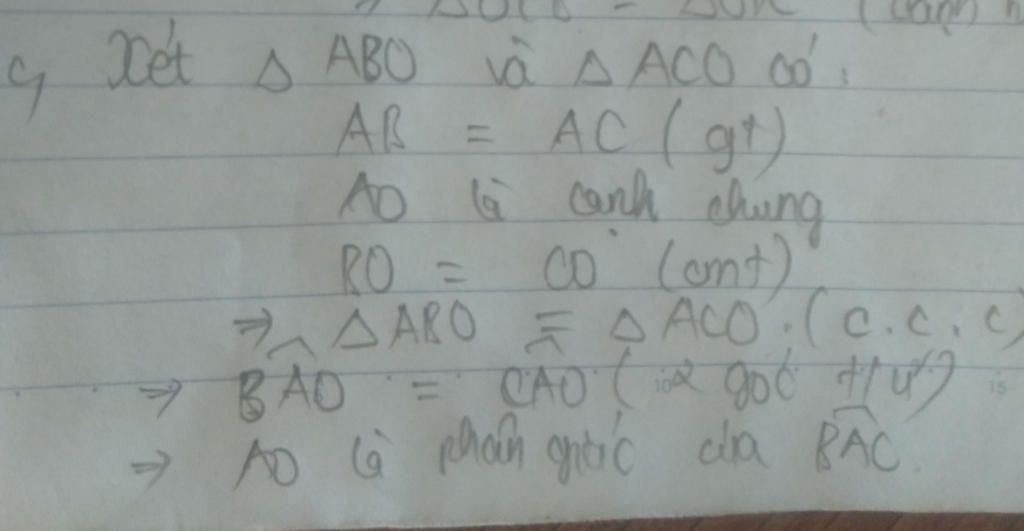 c, Xét Δ ABO và Δ ACO có:
AB = AC (gt)
AO là cạnh chung
BO = CO (cmt)
⇒ Δ ABO = Δ ACO. (c.c.c)
⇒ BÂO = CÂO (2 góc t/ứ)
⇒ AO là phân giác của BÂC.